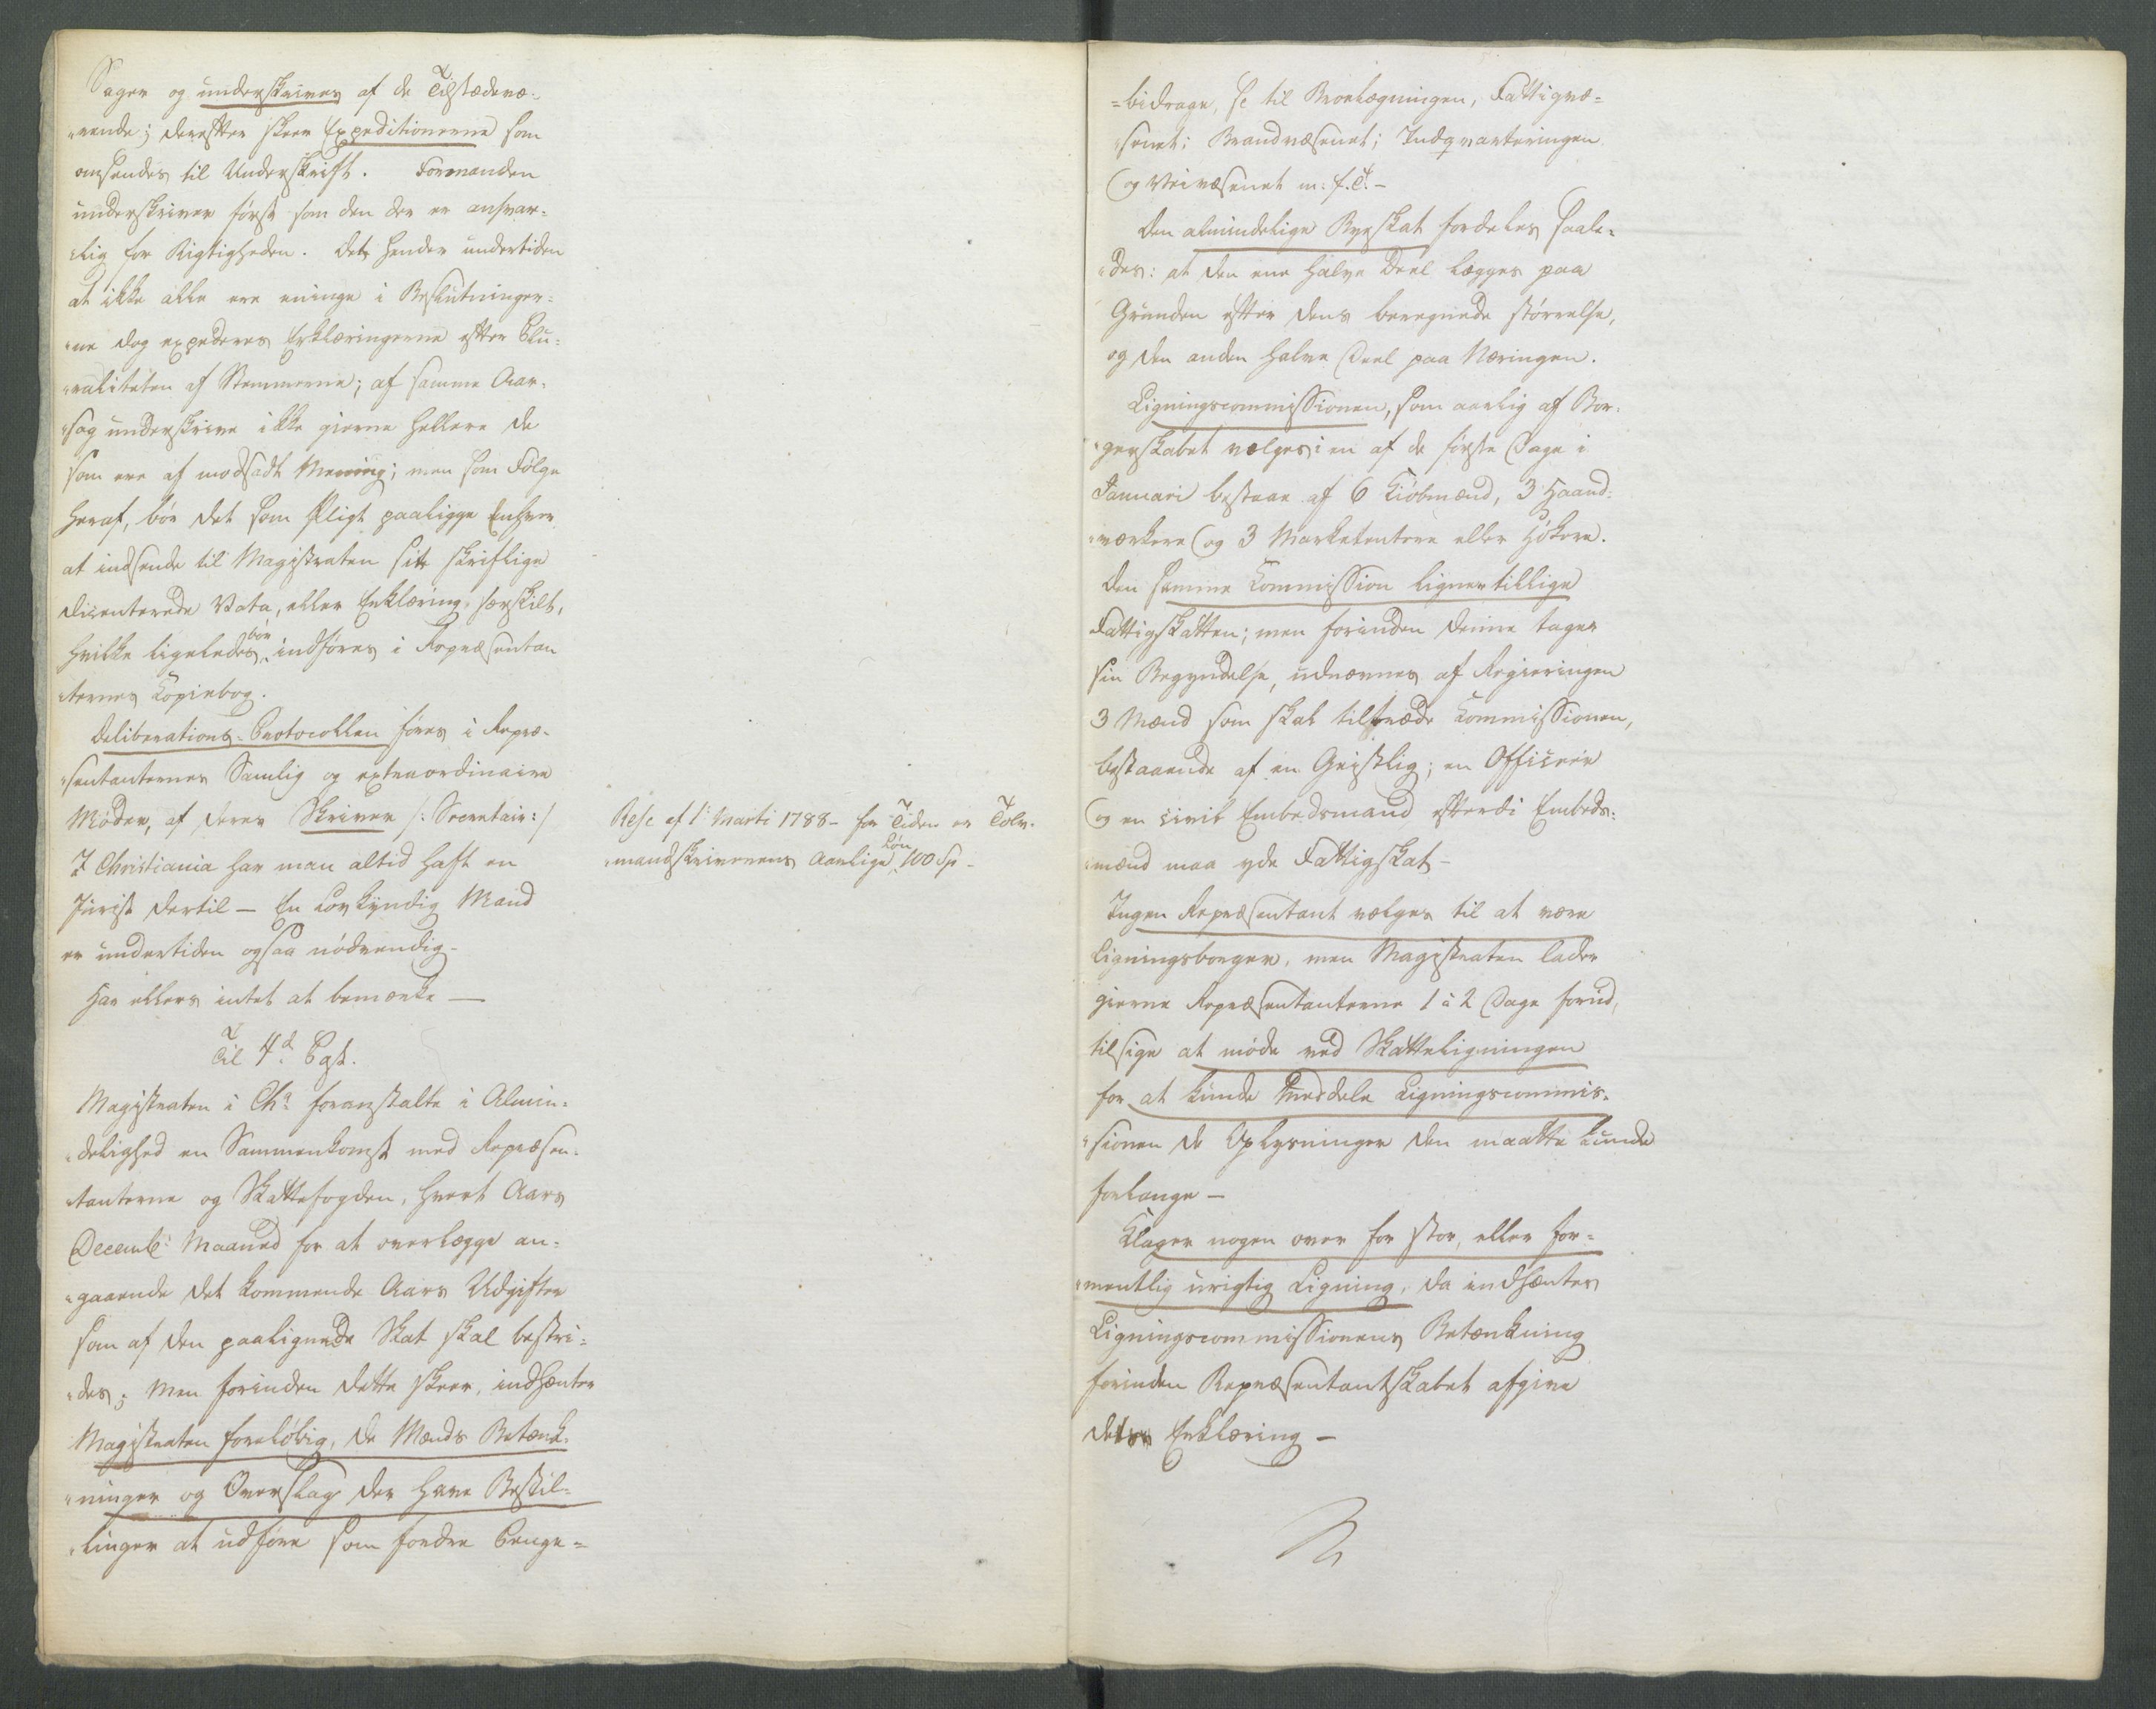 Sager og underskrives af de Tilstædevæ-
-rende; derefter skeer Expeditionerne som
omsendes til Underskrift. Formanden
underskriver først som den der er ansvar-
-lig for Rigtigheden. Det hender undertiden
at ikke alle ere eninge i Beslutninger-
-ne dog expederes Erklæringerne efter Plu-
-raliteten af Stemmerne; af samme Aar-
-sag underskrive ikke gierne hellere de
som ere af modsadt Mening; men som Følge
heraf, bør det som Pligt paaligge Enhver
at indsende til Magistraten sit skriftlige
disenterede Vota, eller Erklæring, særskilt,
hvilke ligeledes bør indføres i Repræsentan
-ternes Kopiebog.
Deliberations-Protocollen føres i Repræ-
-sentanternes Samlig og extraordinaire
Møder, af deres Skriver /: Secretair :/
I Christiania har man altid haft en
Jurist dertil — En Lovkyndig Mand
er undertiden ogsaa nødvendig-
Har ellers intet at bemærke —
Til 4d Post.
Magistraten i Cha foranstalte i Almin-
-delighed en Sammenkomst med Repræsen-
-tanterne og Skattefogden, hvert Aars
Decembr Maaned for at overlægge an-
-gaaende det kommende Aars Udgifter
som af den paalignede Skat skal bestri-
-des; Men forinden dette skeer, indhænter
Magistraten foreløbig, de Mænds Betænk-
-ninger og Overslag der have Bestil-
-linger at udføre som fordre Penge-
Resc af 1 Marti 1788- for Tiden er Tolv-
-mandskriverens Aarlige Løn 100 Sp-
-bidrage, se til Broelægningen, Fattigvæ-
-senet; Brandvæsenet; Indqvarteringen
og Veivæsenet m: f. A.-
Den almindelige Byeskat fordeles saale-
-des: at den ene halve Deel lægges paa
Grunden efter dens beregnede størrelse,
og den anden halve Deel paa Næringen.
Ligningscommissionen, som aarlig af Bor-
-gerskabet vælges i en af de første Dage i
Januari bestaar af 6 Kiøbmænd, 3 Haand-
-værkere og 3 Marketentere eller Høkere.
Den samme Kommission ligner tillige
Fattigskatten; men forinden denne tager
sin Begyndelse, udnævnes af Regieringen
3 Mænd som skal tiltræde Kommissionen,
bestaaende af en Geistlig; en Officeer
og en civil Embedsmand efterdi Embeds-
-mænd maa yde Fattigskat-
Ingen Repræsentant vælges til at være
Ligningsborger, men Magistraten lader
gierne Repræsentanterne 1 à 2 Dage forud,
tilsige at møde ved Skatteligningen
for at kunde meddele Ligningscommis-
-sionen de Oplysninger den maatte kunde
forlange —
Klager nogen over for stor, eller for-
-mentlig urigtig Ligning, da indhæntes
Ligningscommissionens Betænkning
forinden Repræsentantskabet afgive
deres Erklæring —